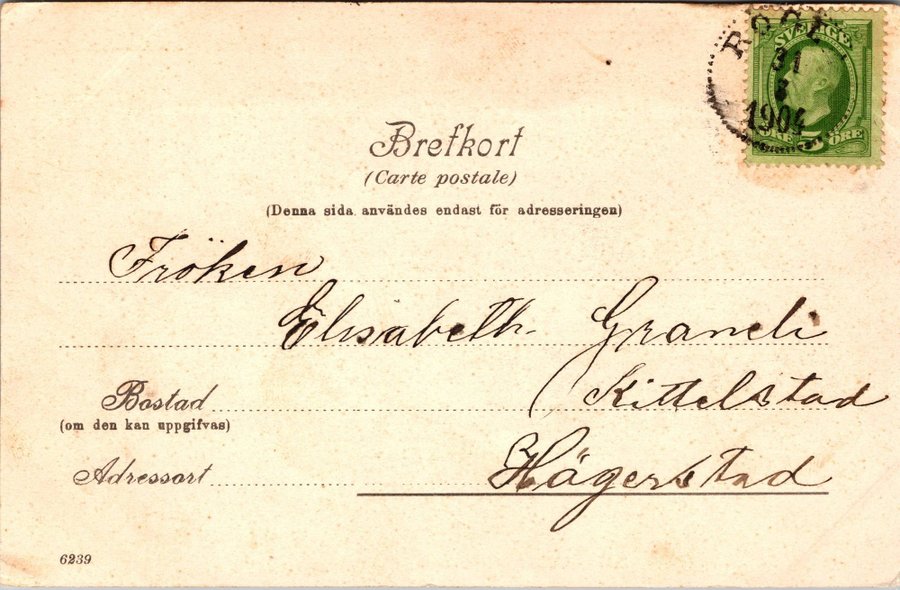 SVERIGE
31
1904
5 ÖRE
Brefkort
(Carte postale)
(Denna sida användes endast för adresseringen)
Fröken
Elisabeth Graneli
Bostad
Kittelstad
(om den kan uppgifvas)
Adressort
Hägerstad
6239